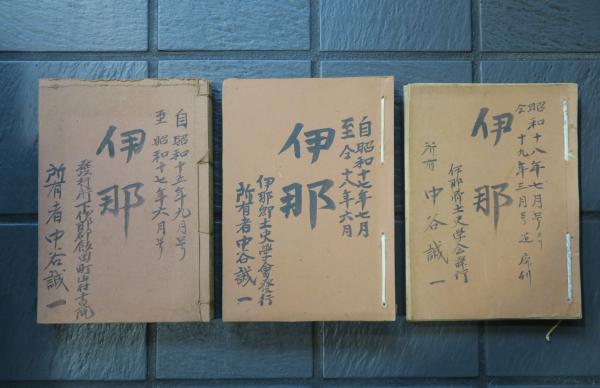 自昭和十五年九月号
至昭和十七年六月号
伊那
發行所下伊那郡飯田町山村書院
所有者中谷誠一
自昭和十七年七月
至仝十八年六月
伊那
伊那郷土史学會發行
所有者中谷誠一
昭和十八年七月号
仝十九年三月号迄
伊那
伊那郷土史学会發行
所有 中谷誠一